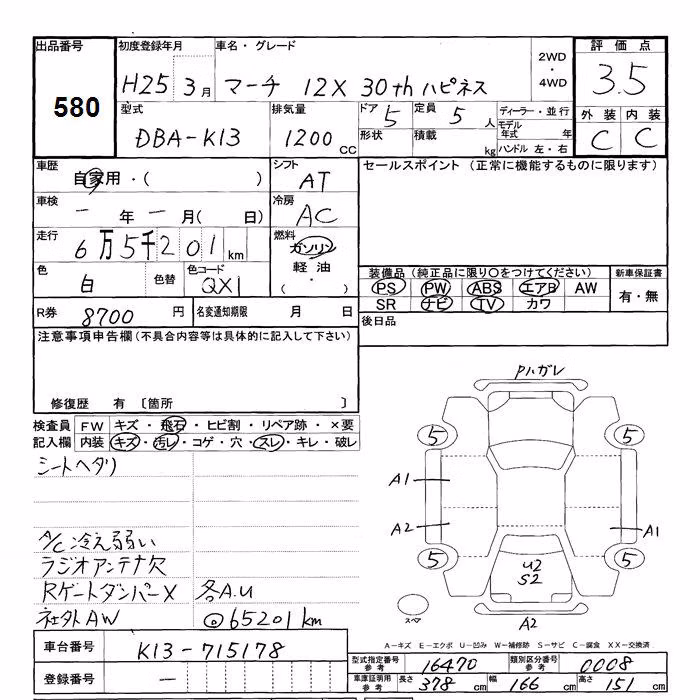 出品番号 初度登録年月 車名・グレード 評価点
580
H25 3月 マーチ 12X 30th ハピネス 2WD・4WD 3.5
型式 排気量 ドア 5 定員 5人 ディーラー・並行 外装 内装
DBA-K13 1200cc 形状 積載 kg モデル年式 年 ハンドル 左・右 C C
車歴 自家用・( ) シフト AT セールスポイント (正常に機能するものに限ります)
車検 ー年ー月( 日) 冷房 AC
走行 6万5千201km 燃料 ガソリン 軽油・( ・ )
色 白 色替 色コード QX1 装備品 (純正品に限り○をつけてください) 新車保証書
PS PW ABS エアB AW 有・無
SR ナビ TV カワ
R券 8700円 名変通知期限 月 日 後日品
注意事項申告欄 (不具合内容等は具体的に記入して下さい)
修復歴 有 〔箇所 〕
検査員記入欄 FW キズ・飛石・ヒビ割・リペア跡・×要
内装 キズ・汚レ・コゲ・穴・スレ・キレ・破レ
シートヘタリ
A/C冷え弱い
ラジオアンテナ欠
RゲートダンパーX 各A.U
社外AW ◎65201km
Pハガレ
5 5
A1
A2 A1
5 5
U2
S2
スペア A2
A-キズ E-エクボ U-凹み W-補修跡 S-サビ C-腐食 XX-交換済
車台番号 K13-715178
登録番号 ー
型式指定番号 参考 16470 類別区分番号 参考 0008
車庫証明用 参考 長さ 378cm 幅 166cm 高さ 151cm